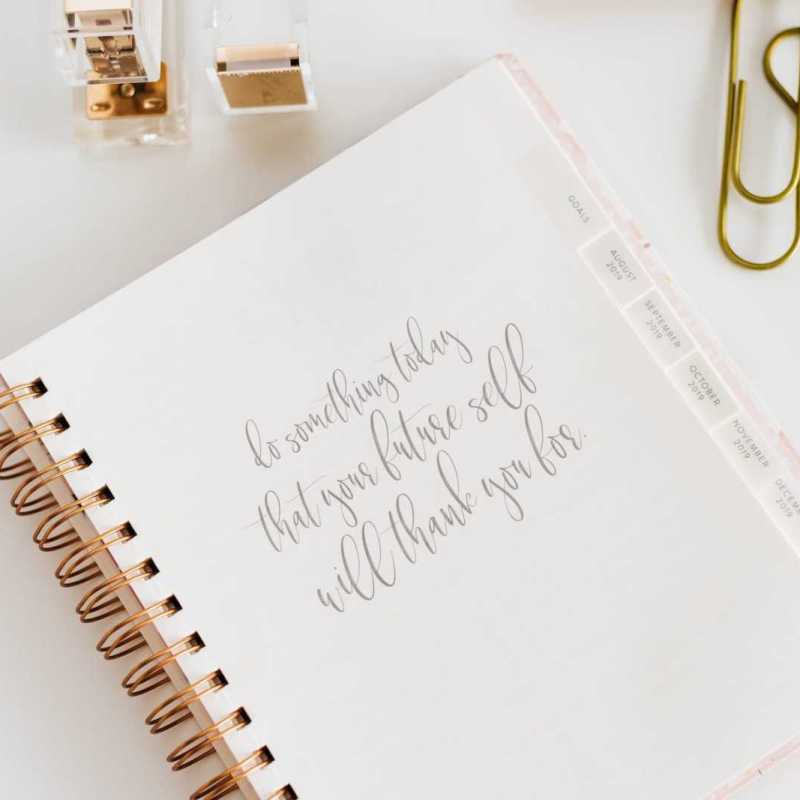 do something today
that your future self
will thank you for.
GOALS
AUGUST
2019
SEPTEMBER
2019
OCTOBER
2019
NOVEMBER
2019
DECEM
2019